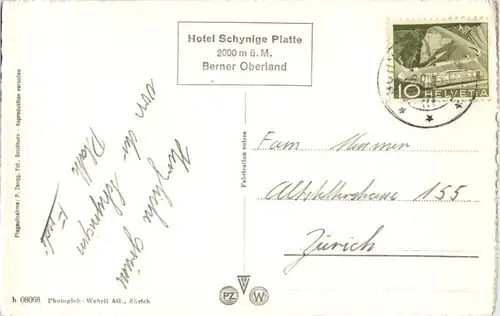 Hotel Schynige Platte
2000 m ü. M.
Berner Oberland
10 HELVETIA
Flugaufnahme: P. Zaugg, Fot., Solothurn - Reproduktion verboten
Herzliche Grüsse
von der Schynigen
Platte
Fabrication suisse
Fam
155
Zürich
PZ W
h 08068 Photoglob-Wehrli AG., Zürich